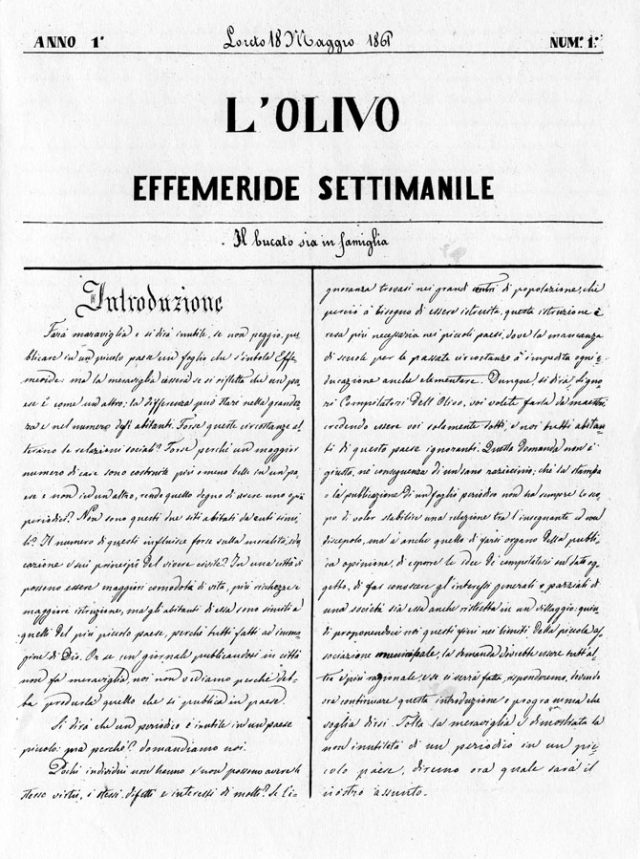 ANNO 1°
Loreto 18 Maggio 1861
NUM. 1.°
L'OLIVO
EFFEMERIDE SETTIMANILE
Il bucato sia in famiglia
Introduzione
Farà maraviglia e si dirà inutile, se non peggio, pub
blicare in un piccolo paese un foglio che s'intitola Effe
meride: ma la maraviglia cesserà se si rifletta che un pa
ese è come un altro: la differenza può stare nella grandez
za e nel numero degli abitanti. Forse queste circostanze al
terano le relazioni sociali? Forse, perchè un maggior
numero di case sono costruite più o meno belle in un pa
ese e non in un altro, rende quello degno di avere uno
periodico? Non sono questi due siti abitati da enti simi
li? Il numero di questi influisce forse sulla moralità,
cazione e sui principj del vivere civile? In una città vi
possono essere maggiori comodità di vita, più ricchezze e
maggiore istruzione, ma gli abitanti di essa sono simili a
quelli del più piccolo paese, perchè tutti fatti ad imma
gine di Dio. Or se un giornale pubblicandosi in città
non fa maraviglia, noi non vediamo perchè deb
ba produrla quello che si pubblica in paese.
Si dirà che un periodico è inutile in un paese
piccolo: ma perchè? domandiamo noi.
Pochi individui non hanno e non possono avere le
stesse virtù, i stessi difetti e interessi di molti? Se l'i-
gnoranza trovasi nei grandi centri di popolazione, che
perciò à bisogno di essere istruita, questa istruzione è
cosa più necessaria nei piccoli paesi, dove la mancanza
di scuole per le passate circostanze à impedita ogni e
ducazione anche elementare. Dunque, si dirà, Signo
ri Compilatori dell'Olivo, voi volete farla da maestri
credendo essere voi solamente dotti, e noi tutti abitan
ti di questo paese ignoranti. Questa domanda non è
giusta, nè conseguenza di un sano raziocinio; chè la stampa
o la pubblicazione di un foglio periodico non ha sempre lo sco
po di voler stabilire una relazione tra l'insegnante ed un
discepolo, ma è anche quello di farsi organo della pubbli
ca opinione, di esporre le idee di compilatori sul dato og
getto, di far conoscere gl'interessi generali o parziali di
una società sia essa anche ristretta in un villaggio: quin
di proponendoci noi questi fini nei limiti della piccola as
sociazione comunicipale, la domanda dovrebbe essere tutt'al
tra e più razionale, e se ci verrà fatta, risponderemo, dovendo
ora continuare questa introduzione o programma che
voglia dirsi. Tolta la maraviglia e dimostrata la
non inutilità di un periodico in un pic
colo paese, diremo ora quale sarà il
nostro assunto.